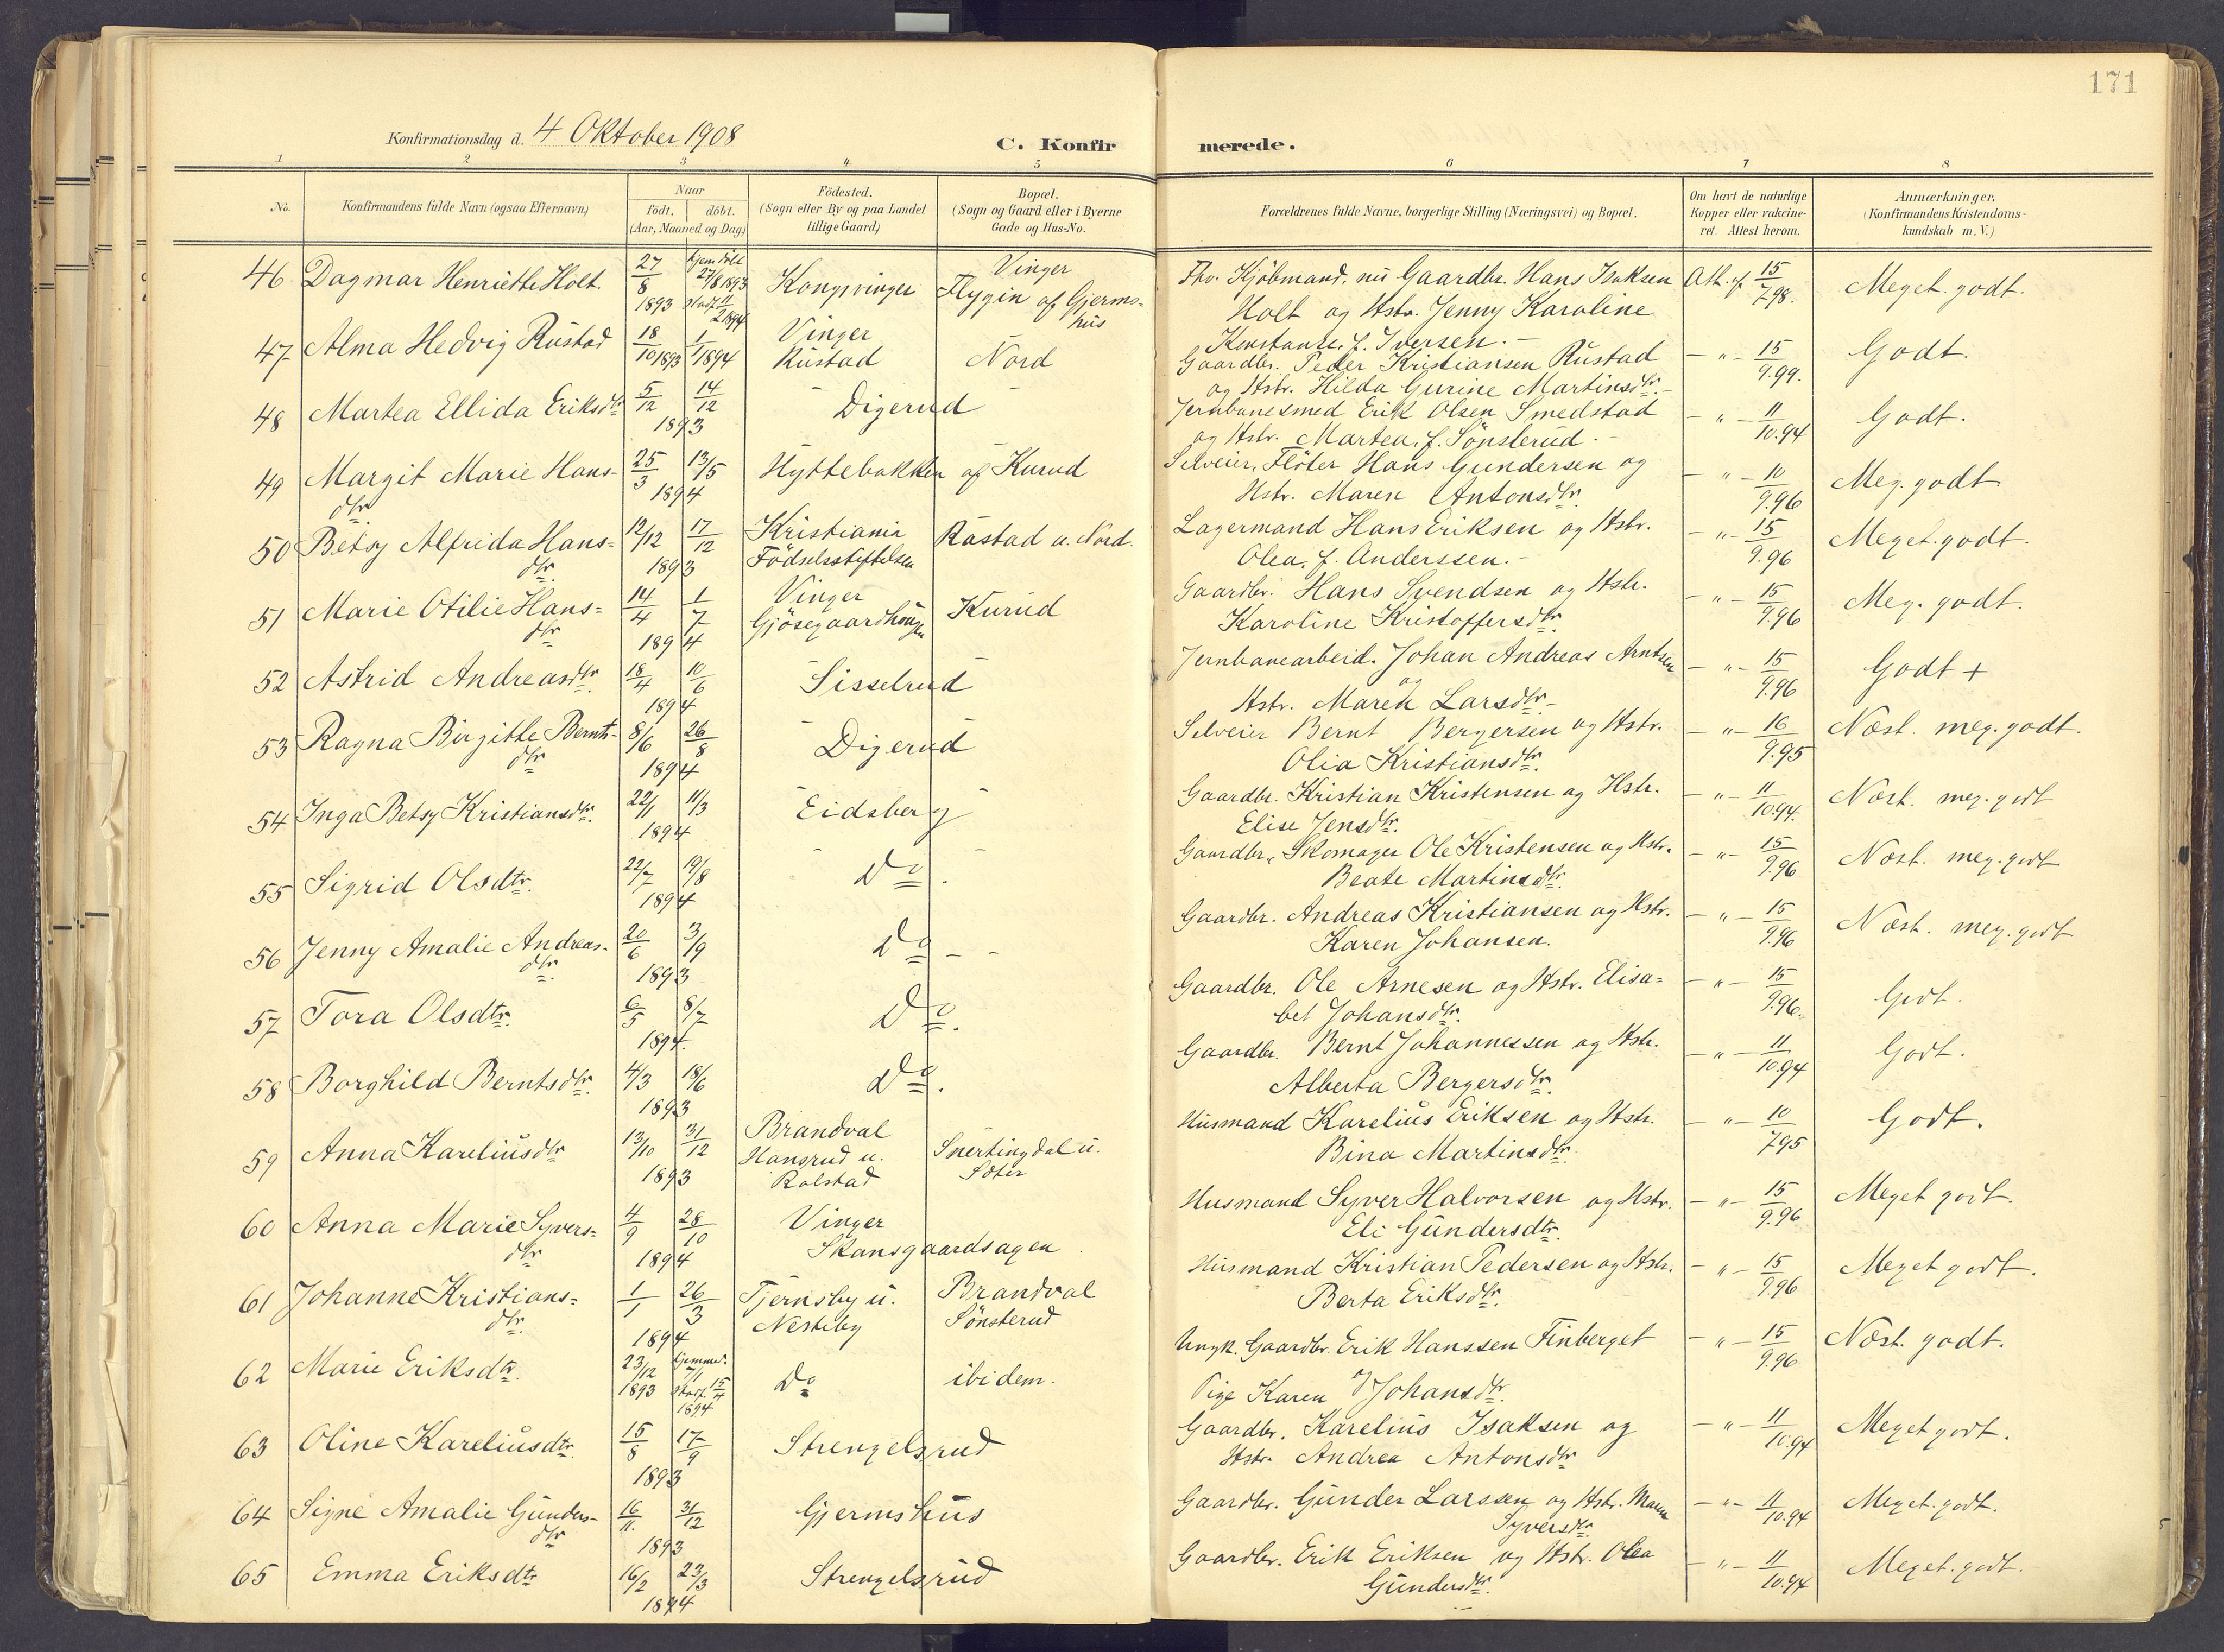 171
Konfirmationsdag d. 4 Oktober 1908
C. Konfirmerede.
1 2 3 4 5 6 7 8
No.
Konfirmandens fulde Navn (ogsaa Efternavn)
Naar
födt. döbt.
(Aar, Maaned og Dag)
Födested.
(Sogn eller By og paa Landet
tillige Gaard)
Bopæl.
(Sogn og Gaard eller i Byerne
Gade og Hus-No.
Forældrenes fulde Navne, borgerlige Stilling (Næringsvei) og Bopæl.
Om havt de naturlige
Kopper eller vakcine-
ret. Attest herom.
Anmærkninger.
(Konfirmandens Kristendoms-
kundskab m. V.)
46 Dagmar Henriette Holt. 27/8 1893 hjemdöbt 27/8 1893 stadf. 11/2 1894 Kongsvinger Vinger
Flygin af Gjerms-
hus
Fhv. Kjöbmand, nu Gaardbr. Hans Isaksen
Holt og Hstr. Jenny Karoline
Konstance, f. Iversen.-
Att. af 15/7 98. Meget godt.
47 Alma Hedvig Rustad 18/10 1893 1/1 1894 Vinger
Rustad Nord
Gaardbr. Peder Kristiansen Rustad
og Hstr. Hilda Gurine Martinsdtr.-
-"- 15/9.99. Godt.
48 Martea Ellida Eriksdtr 5/12 14/12 1893 Digerud
Jernbanesmed Erik Olsen Smedstad
og Hstr. Martea, f. Sönsterud.-
-"- 11/10.94 Godt.
49 Margit Marie Hans-
dtr. 25/3 13/5 1894 Hyttebakken af Kurud
Selveier, Flöter Hans Gundersen og
Hstr. Maren Antonsdtr.
-"- 10/9.96 Meg. godt
50 Betsy Alfrida Hans=
dtr. 12/12 17/12 1893 Kristiania
Födselsstiftelsen Rastad u. Nord.
Lagermand Hans Eriksen og Hstr.
Olea, f. Anderssen.-
-"- 15/9.96 Meget godt.
51 Marie Otilie Hans=
dtr 14/4 1/7 1894 Vinger
Gjösegaardhaugen Kurud
Gaardbr. Hans Svendsen og Hstr.
Karoline Kristoffersdtr.
-"- 15/9.96 Meg. godt.
52 Astrid Andreasdtr. 18/4 10/6 1894 Sisselrud
Jernbanearbeid. Johan Andreas Arntsen
og
Hstr. Maren Larsdtr.-
-"- 15/9.96 Godt +
53 Ragna Birgitte Bernts-
dtr 8/6 26/8 1894 Digerud
Selveier Bernt Bergersen og Hstr.
Olia Kristiansdtr.
-"- 16/9.95 Næst. meg. godt.
54 Inga Betsy Kristiansdtr. 22/1 11/3 1894 Eidsberg
Gaardbr. Kristian Kristensen og Hstr.
Elise Jensdtr.
-"- 11/10.94. Næst. meg. godt
55 Sigrid Olsdtr. 22/7 19/8 1894 Do.
Gaardbr., Skomager Ole Kristensen og Hstr.
Beate Martinsdtr.
-"- 15/9.96 Næst. meg. godt
56 Jenny Amalie Andreas-
dtr. 20/6 3/9 1893 Do - -
Gaardbr. Andreas Kristiansen og Hstr.
Karen Johansen.
-"- 15/9.96 Næst. meg. godt
57 Tora Olsdtr. 6/5 8/7 1894. Do.
Gaardbr. Ole Arnesen og Hstr. Elisa=
bet Johansdtr.
-"- 15/9.96. Godt.
58 Borghild Berntsdtr. 4/3 18/6 1893 Do.
Gaardbr. Bernt Johannessen og Hstr.
Alberta Bergersdtr.
-"- 11/10.94 Godt.
59 Anna Kareliusdtr 13/10 31/12 1893 Brandval
Hansrud u.
Rolstad Snertingdal u.
Sæter
Husmand Karelius Eriksen og Hstr.
Bina Martinsdtr.
-"- 10/7 95 Godt.
60 Anna Marie Syvers=
dtr 4/9 28/10 1894 Vinger
Skansgaardsagen
Husmand Syver Halvorsen og Hstr.
Eli Gundersdtr.
-"- 15/9.96 Meget godt.
61 Johanne Kristians=
dtr. 1/1 26/3 1894 Tjernsby u.
Nesteby Brandval
Sönsterud
Husmand Kristian Pedersen og Hstr.
Berta Eriksdtr.
-"- 15/9.96 Meget godt.
62 Marie Eriksdtr. 23/12 1893 hjemmed. 7/1 stadf. 15/4 1894 Do ibidem.
Ungk. Gaardbr. Erik Hanssen Finberget
og
Pige Karen Johansdtr.
-"- 15/9.96 Næst. godt.
63 Oline Kareliusdtr. 15/8 17/9 1893 Strengelsrud
Gaardbr. Karelius Isaksen og
Hstr. Andrea Antonsdtr
-"- 11/10.94 Meget godt.
64 Signe Amalie Gunders-
dtr 16/11. 31/12 1893 Gjermshus
Gaardbr. Gunder Larssen og Hstr. Maren
Syversdtr.
-"- 11/10.94 Meget. godt.
65 Emma Eriksdtr 16/2 23/3 1894 Strengelsrud
Gaardbr. Erik Eriksen og Hstr. Olea
Gundersdtr.
-"- 11/10.94 Meget. godt.